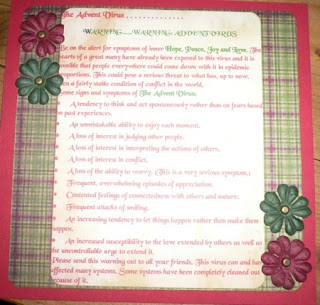 The Advent Virus . . . . . . . . . . . . .
WARNING......WARNING ADVENT VIRUS
Be on the alert for symptoms of inner Hope, Peace, Joy and Love. The
hearts of a great many have already been exposed to this virus and it is
possible that people everywhere could come down with it in epidemic
proportions. This could pose a serious threat to what has, up to now,
been a fairly stable condition of conflict in the world.
Some signs and symptoms of The Advent Virus:
A tendency to think and act spontaneously rather than on fears based
on past experiences.
An unmistakable ability to enjoy each moment.
A loss of interest in judging other people.
A loss of interest in interpreting the actions of others.
A loss of interest in conflict.
A loss of the ability to worry. (This is a very serious symptom.)
Frequent, overwhelming episodes of appreciation.
Contented feelings of connectedness with others and nature.
Frequent attacks of smiling.
An increasing tendency to let things happen rather than make them
happen.
An increased susceptibility to the love extended by others as well as
the uncontrollable urge to extend it.
Please send this warning out to all your friends. This virus can and has
affected many systems. Some systems have been completely cleaned out
because of it.